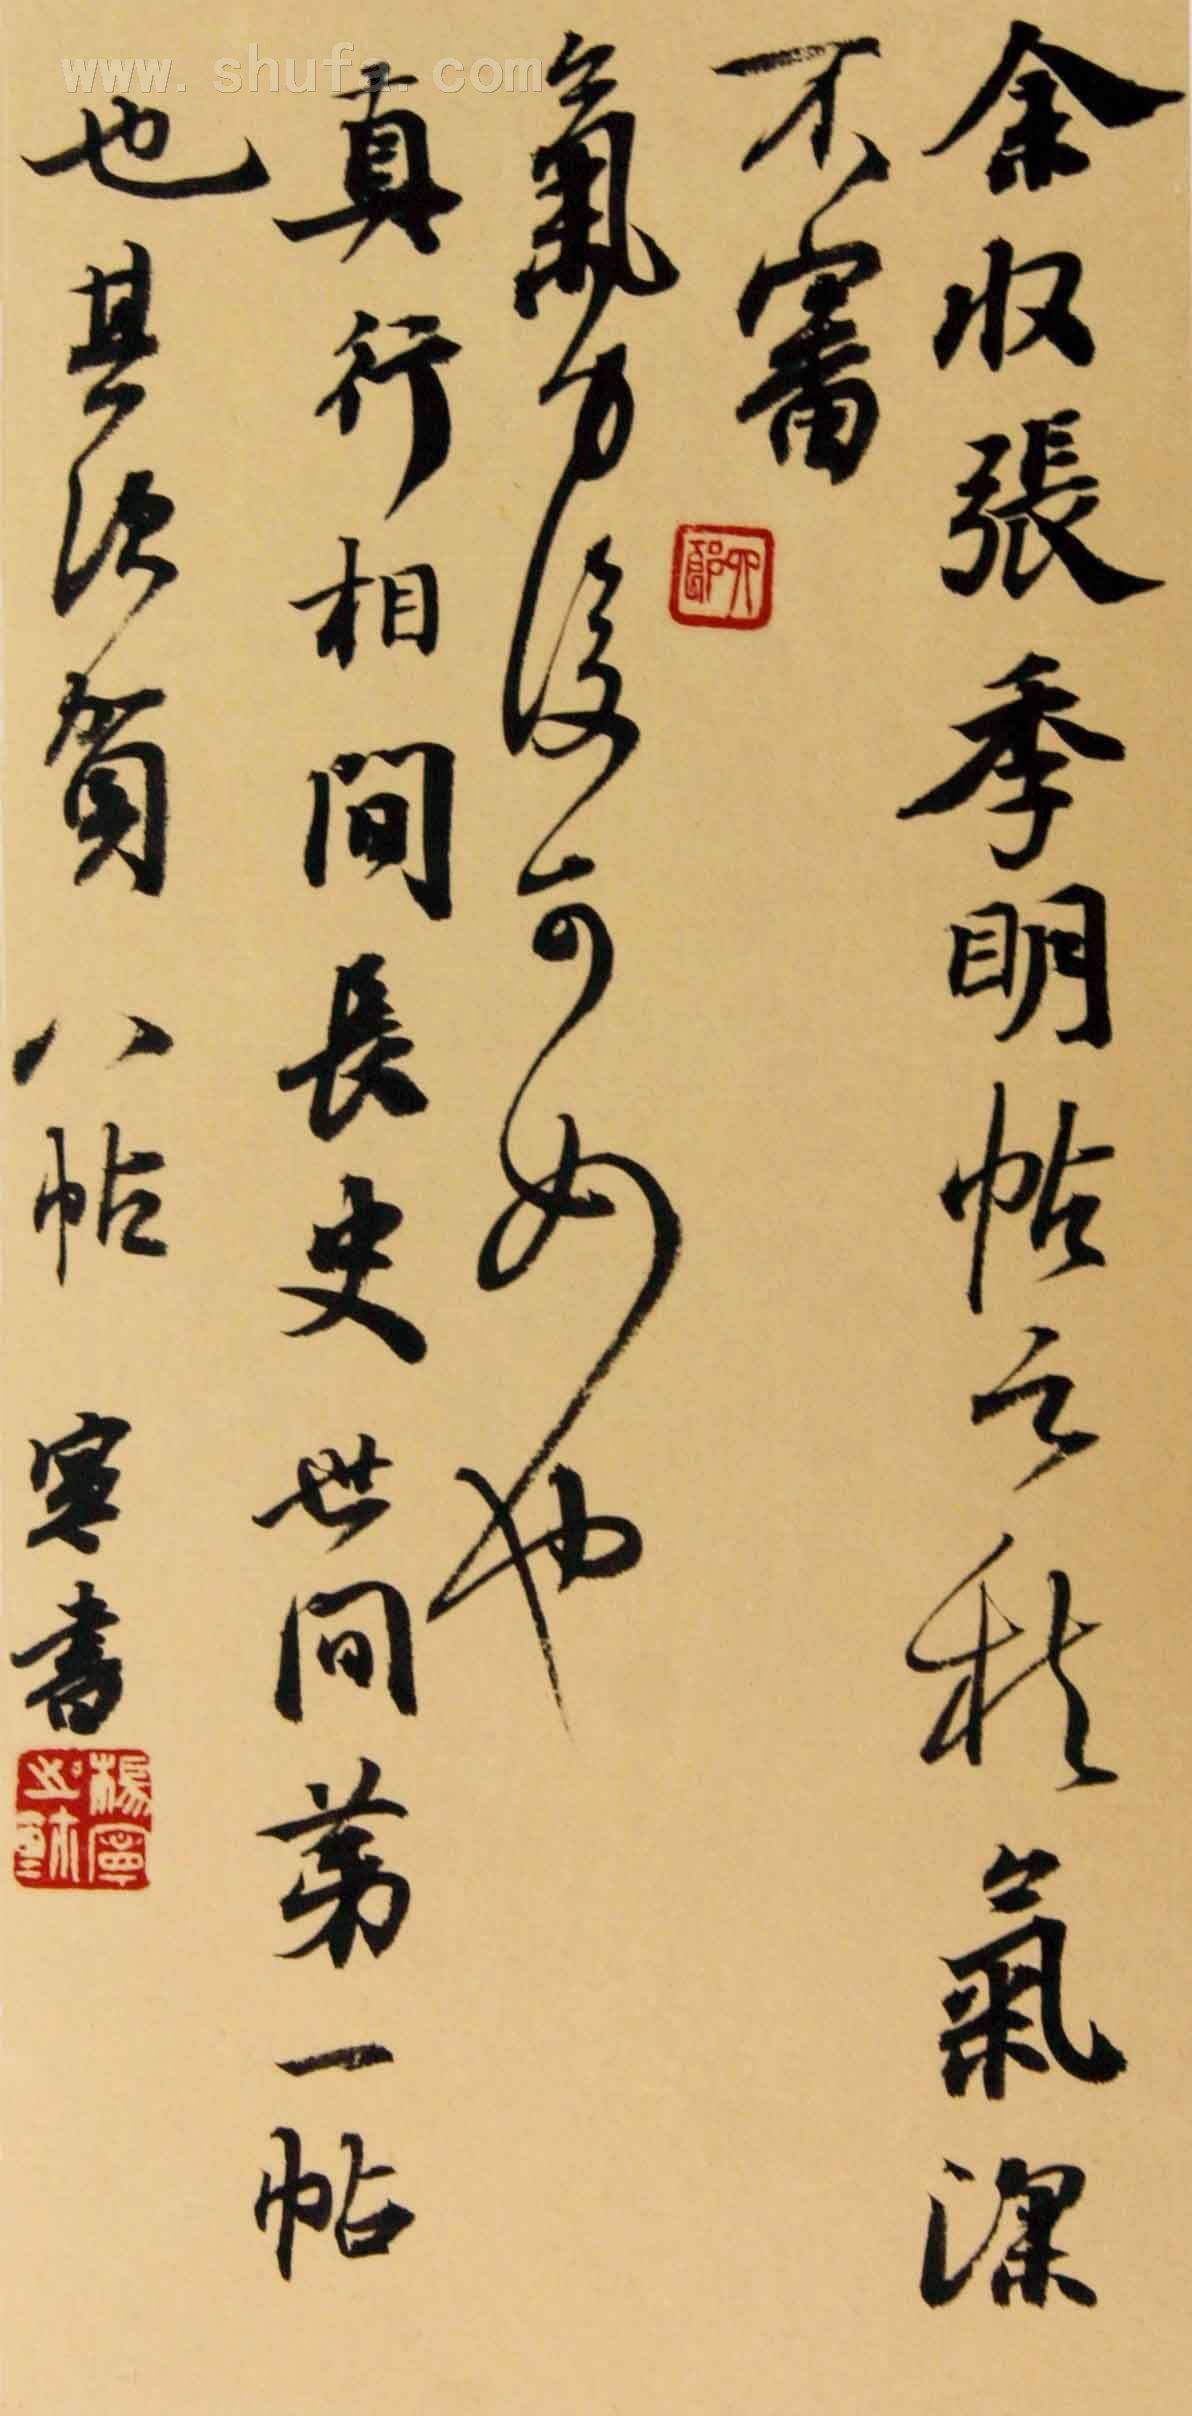 余收張季明帖云秋氣深
不審
氣力復何如也
真行相間長史世間第一帖
也其次賀八帖
寧書
楊寧之鉨
www.shufa.com